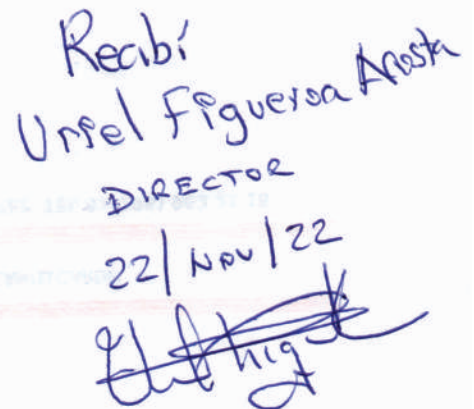 Recibí
Uriel Figueroa Acosta
DIRECTOR
22/NOV/22